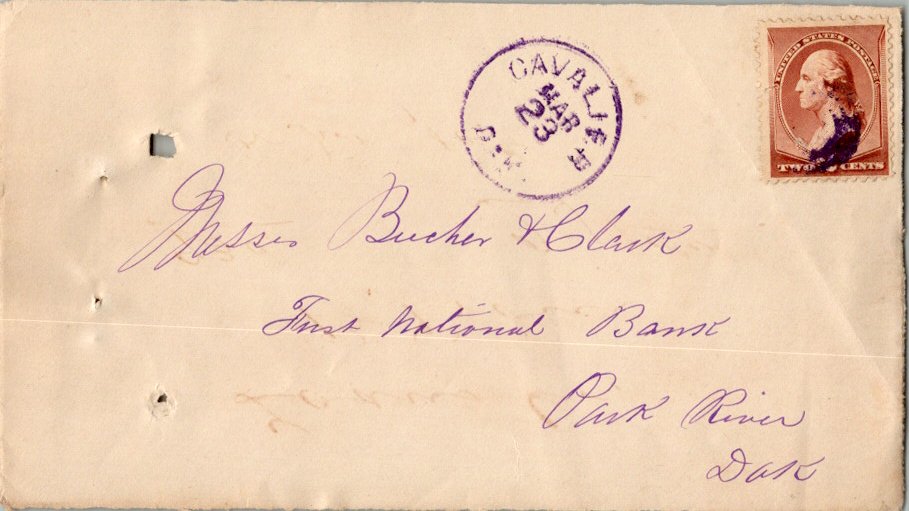 CAVALIER
MAR
23
UNITED STATES POSTAGE
TWO CENTS
Messrs Bucher & Clark
First National Bank
Park River
Dak